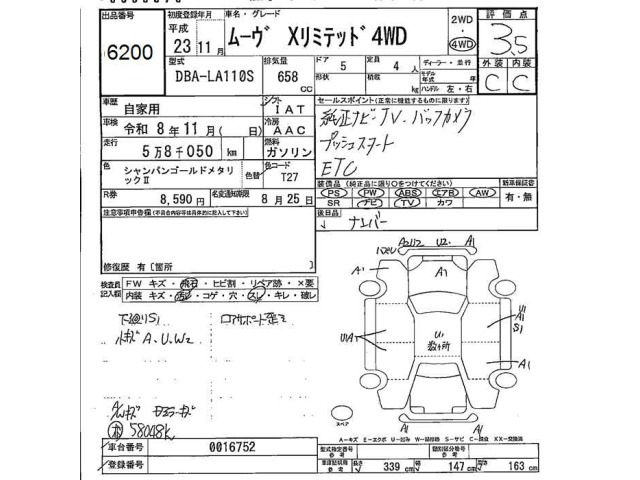 出品番号 初度登録年月 車名・グレード 2WD 評価点
6200 平成 23年11月 ムーヴ Xリミテッド 4WD 4WD 3.5
型式 排気量 ドア 5 定員 4 人 ディーラー・並行 外装 内装
DBA-LA110S 658 cc 形状 積載 kg モデル年式 年 ハンドル 左・右 C C
車歴 自家用 シフト IAT セールスポイント(正常に機能するものに限ります)
車検 令和 8年11月( 日) 冷房 AAC 純正ナビ・TV・バックカメラ
走行 5万8千050 km 燃料 ガソリン プッシュスタート
色 シャンパンゴールドメタリックⅡ 色替 色コード T27 ETC
R券 8,590円 名変通知期限 8月25日 装備品(純正品に限り○をつけてください) 新車保証書
PS PW ABS エアB AW 有・無
SR ナビ TV カワ
注意事項申告欄(不具合は具体的に記入して下さい) 後日品 ナンバー
修復歴 有[箇所 ]
検査員記入欄 FW キズ・飛石・ヒビ割・リペア跡・×要
内装 キズ・汚れ・コゲ・穴・スレ・キレ・破レ
下廻りS1
小キズ A.U.W2
A1 A1 A1
U2
U1A
U1 数ヶ所
U1 A1 S1
A1
58048K
スペア
A1 A1
A-キズ E-エクボ U-凹み W-補修跡 S-サビ C-腐食 XX-交換済
車台番号 0016752 型式指定番号 参考 類別区分番号 参考
登録番号 車庫証明用 参考 長さ 339 cm 幅 147 cm 高さ 163 cm